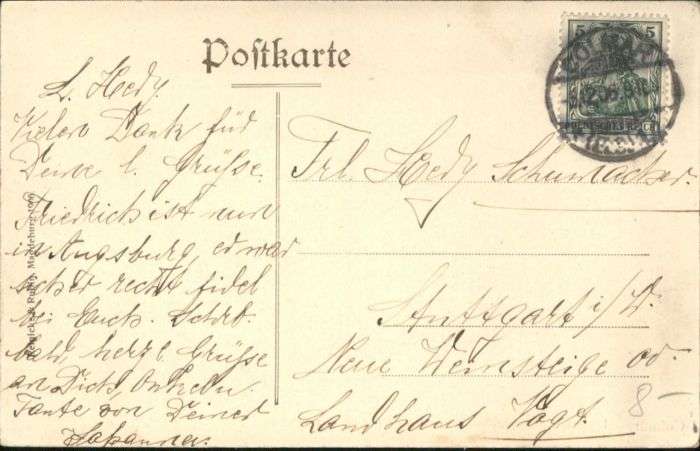 Postkarte
5 5
DEUTSCHES REICH
L. Hedy.
Vielen Dank für
Deine l. Grüsse.
Friedrich ist nun
in Augsburg, er war
sicher recht fidel
bei Euch. Schreib
bald, herzl. Grüsse
an Dich, Onkel u.
Tante von Deiner
Johanna.
Frl. Hedy Schumacher
Stuttgart i/W.
Neue Weinsteige od.
Landhaus Vogt.
8 —
Magdeburg